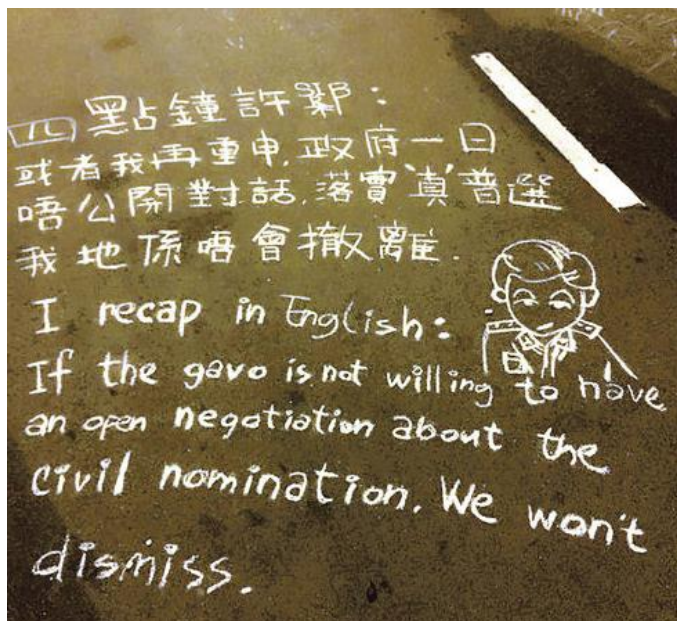 四點鐘許鄴:
或者我再重申,政府一日
唔公開對話,落實'真'普選
我地係唔會撤離.
I recap in English:
If the gavo is not willing to have
an open negotiation about the
civil nomination. We won't
dismiss.